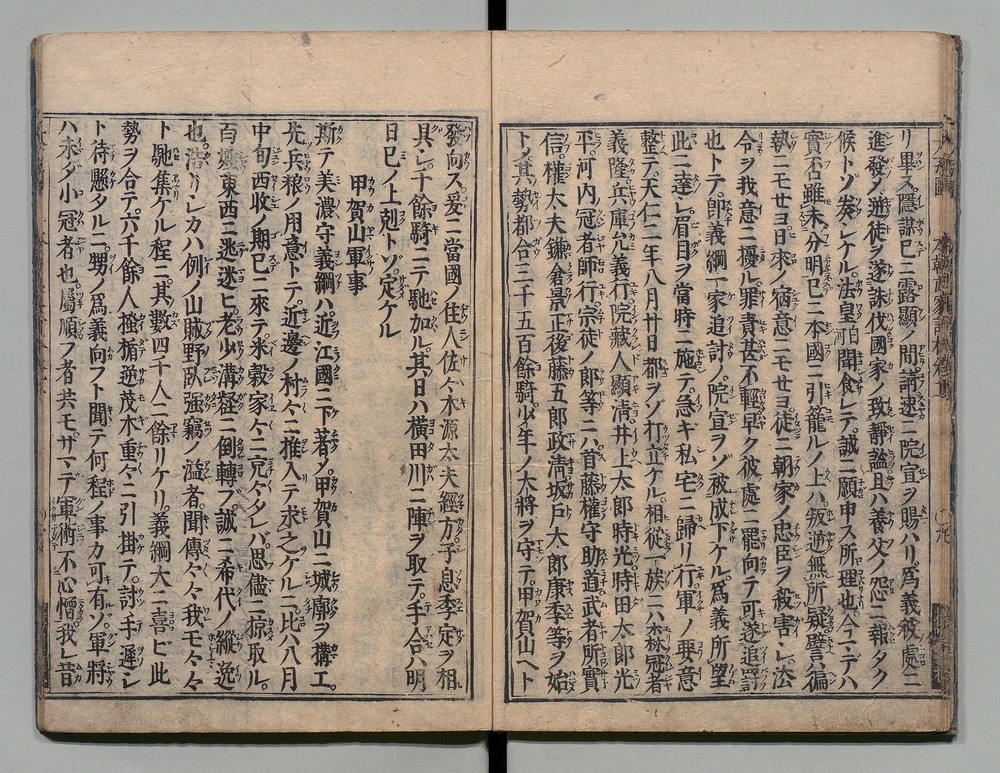 リ畢ヌ隠謀已ニ露顯ノ間請速ニ院宣ヲ賜ハリ爲義彼處ニ
進發メ逆徒ヲ遂誅伐國家ノ致靜謐且ハ養父ノ怨ニ報タク
候トソ奏レケル法皇
聞食レテ誠ニ願申ス所理也今マデハ
實否雖未分明已ニ本國ニ引籠ルノ上ハ叛逆無所疑譬ハ徧
執ニモセヨ日來ノ病意ニモセヨ徒ニ朝家ノ忠臣ヲ殺害レ法
令ヲ我意ニ擾ル罪責甚不輕早ク彼處ニ罷向テ可遂追罰
也トテ即義綱一家追討ノ院宣ヲゾ被成下ケル爲義所望
此ニ達レ眉目ヲ當時ニ施テ急ギ私宅ニ歸リ行軍ノ要意
整テ天仁二年八月廿日都ヲゾ打立ケル相從一族ニハ森冠者
義隆兵庫允義行院藏人顯清井上太郎時光時田太郎光
平河内冠者師行宗徒ノ郎等ニハ首藤權守助道武者所實
信權太夫鎌倉景正後藤五郎政淸坂戸大郎康季等ヲ始
トメ其勢都合三千五百餘騎少年ノ大將ヲ守テ甲賀山ヘト
發向ス爰ニ當國ノ住人佐々木源太夫經方子息季定ヲ相
具レ千餘騎ニテ馳加ル其日ハ横田川ニ陣ヲ取テ手合ハ明
日巳ノ上剋トソ定ケル
甲賀山軍事
斯テ美濃守義綱ハ近江國ニ下著メ甲賀山ニ城廓ヲ構エ
先兵粮ノ用意トテ近邊ノ村々ニ推入テ求之ケルニ比ハ八月
中旬西收ノ期已ニ來テ米穀家々ニ充々タレバ思儘ニ掠取ル
百姓東西ニ逃迷ヒ老少溝壑ニ倒轉フ誠ニ希代ノ縱逸
也浩リシカハ例ノ山賊野臥强竊ノ溢者聞傳々々我モ々々
ト馳集ケル程ニ其數四千人ニ餘リケリ義綱大ニ喜ビ此
勢ヲ合テ六千餘人搔楯逆茂木重々ニ引掛テ討手遲レ
ト待懸タルニ甥ノ爲義向フト聞テ何程ノ事カ可有ソ軍將
ハ未タ小冠者也屬順フ者共モサマデ軍術不心憎我レ昔